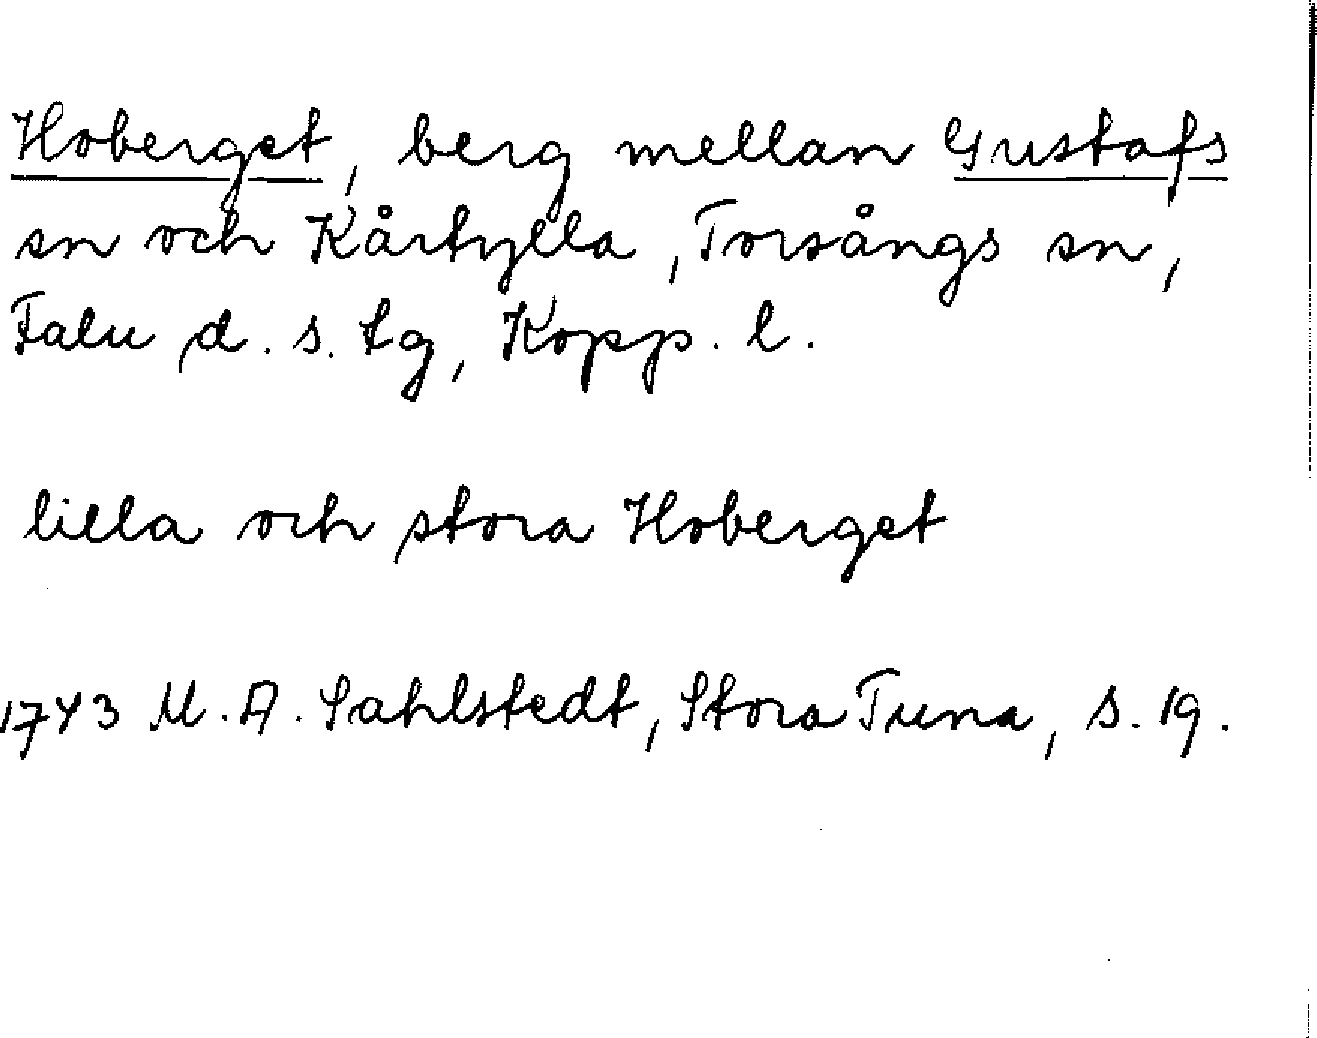 Hoberget, berg mellan Gustafs
sn och Kårtylla, Torsångs sn,
Falu d. s. tg, Kopp. l.
lilla och stora Hoberget
1743 M. A. Sahlstedt, Stora Tuna, s. 19.